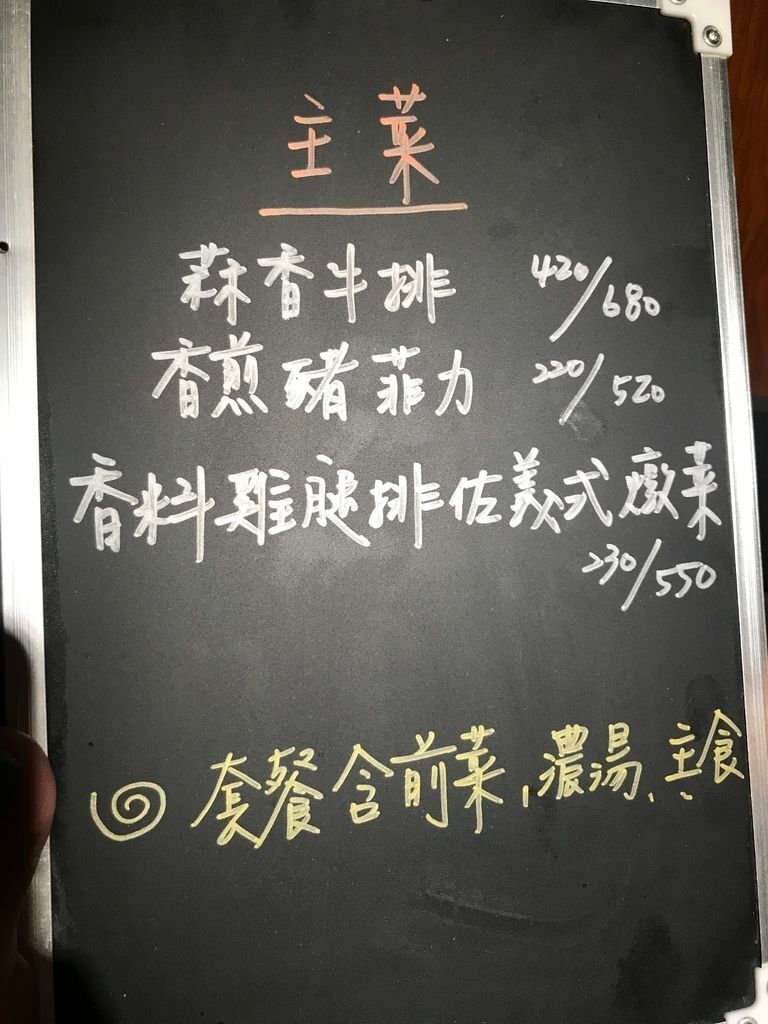 主菜
蒜香牛排 420/680
香煎豬菲力 220/520
香料雞腿排佐義式燉菜
230/550
套餐含前菜,濃湯、主食